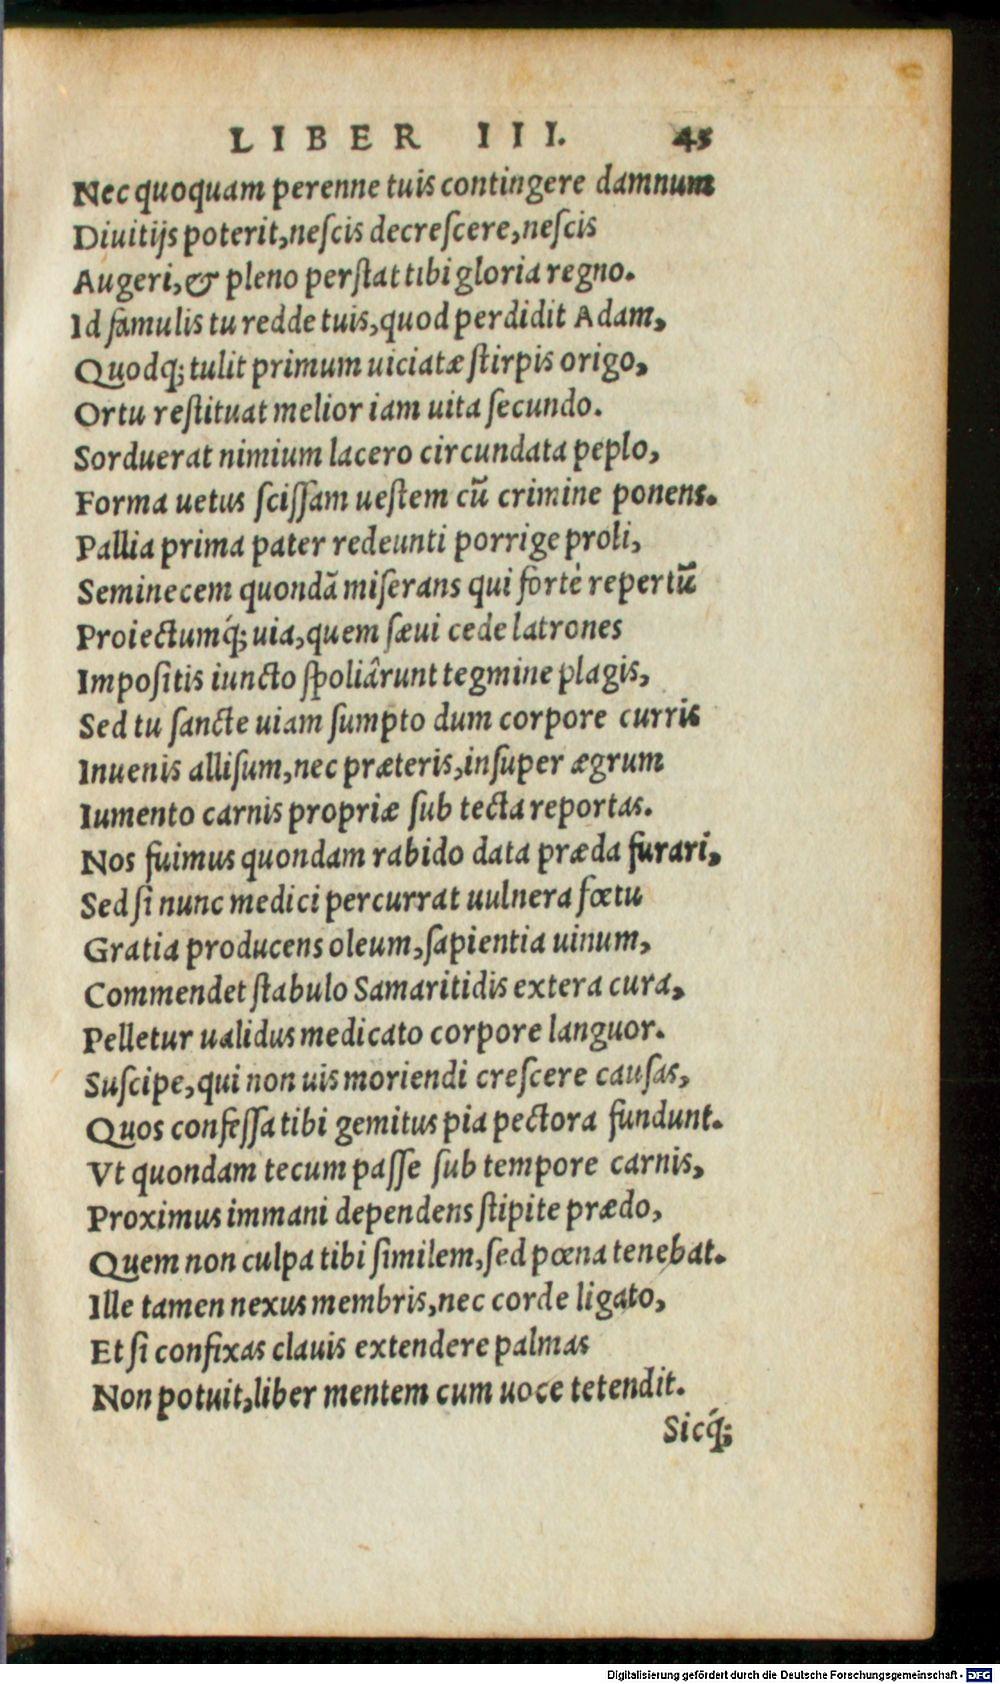 LIBER III. 45
Nec quoquam perenne tuis contingere damnum
Diuitijs poterit,neſcis decreſcere,neſcis
Augeri,& pleno perſtat tibi gloria regno.
Id famulis tu redde tuis,quod perdidit Adam,
Quodq́; tulit primum uiciatæ ſtirpis origo,
Ortu reſtituat melior iam uita ſecundo.
Sorduerat nimium lacero circundata peplo,
Forma uetus ſciſſam ueſtem cū crimine ponens.
Pallia prima pater redeunti porrige proli,
Seminecem quondã miſerans qui fortè repertū
Proiectumq́; uia,quem ſæui cede latrones
Impoſitis iuncto ſpoliârunt tegmine plagis,
Sed tu ſancte uiam ſumpto dum corpore curris
Inuenis alliſum,nec præteris,inſuper ægrum
Iumento carnis propriæ ſub tecta reportas.
Nos fuimus quondam rabido data præda furari,
Sed ſi nunc medici percurrat uulnera fœtu
Gratia producens oleum,ſapientia uinum,
Commendet ſtabulo Samaritidis extera cura,
Pelletur ualidus medicato corpore languor.
Suſcipe,qui non uis moriendi creſcere cauſas,
Quos confeſſa tibi gemitus pia pectora fundunt.
Vt quondam tecum paſſe ſub tempore carnis,
Proximus immani dependens ſtipite prædo,
Quem non culpa tibi ſimilem,ſed pœna tenebat.
Ille tamen nexus membris,nec corde ligato,
Et ſi confixas clauis extendere palmas
Non potuit,liber mentem cum uoce tetendit.
Sicq́;
Digitalisierung gefördert durch die Deutsche Forschungsgemeinschaft - DFG